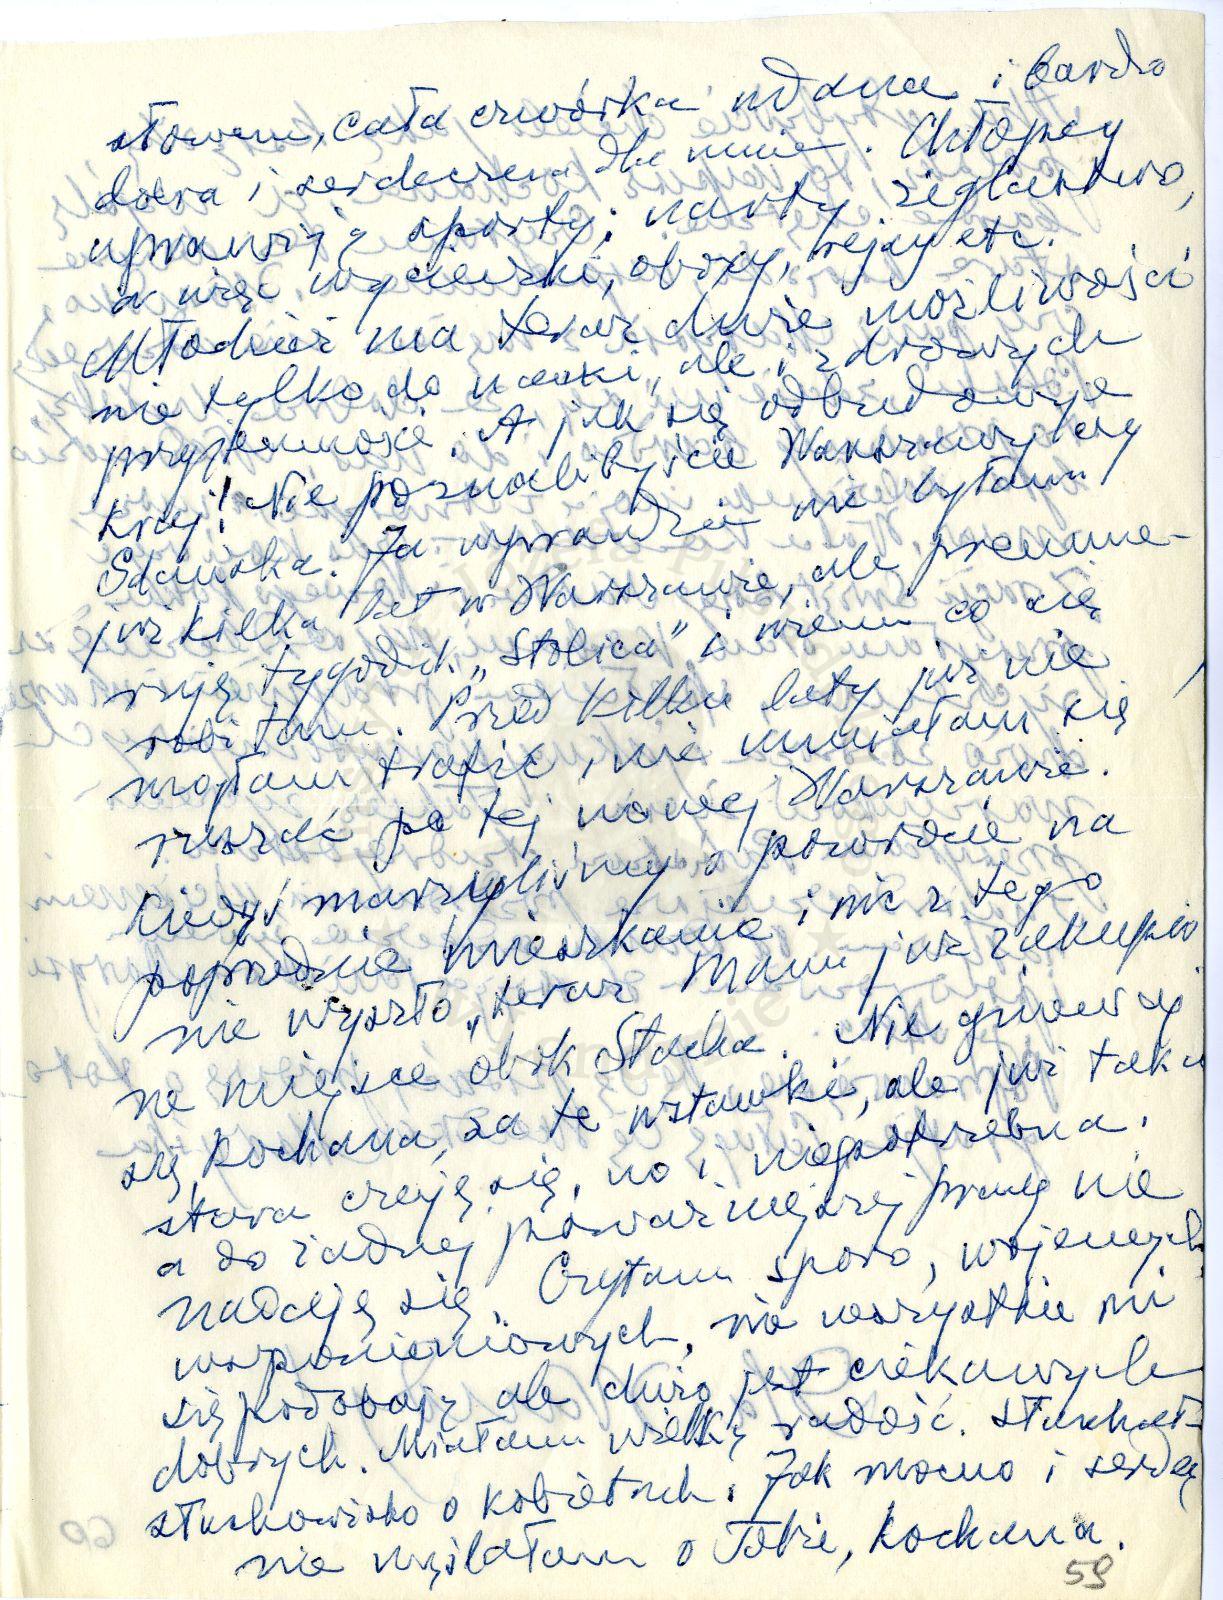 słowem, cała czwórka udana i bardzo
dobra i serdeczna dla mnie. Chłopcy
uprawiają sporty; narty, żeglarstwo,
a więc wycieczki, obozy, rejsy etc.
Młodzież ma teraz duże możliwości
nie tylko do nauki, ale i zdrowych
przyjemności. A jak się odbudowuje
kraj! Nie poznalibyście Warszawy czy
Gdańska. Ja wprawdzie nie byłam
już kilka lat w Warszawie, ale prenume-
ruję tygodnik „Stolica" i wiem co się
robi tam. Przed kilku laty już nie
mogłam trafić, nie umiałam się
ruszać po tej nowej Warszawie.
Kiedyś marzyliśmy o powrocie na
poprzednie mieszkanie i nic z tego
nie wyszło, teraz mam już zakupio
ne miejsce obok Stacha. Nie gniewaj
się, kochana, za te wstawki, ale już taka
stara czuję się, no i niepotrzebna,
a do żadnej poważniejszej pracy nie
nadaję się. Czytam sporo, wojennych
wspomnieniowych, nie wszystkie mi
się podobają ale dużo jest ciekawych
dobrych. Miałam wielką radość.
słuchowisko o kobietach. Jak mocno i serdecz
nie myślałam o Tobie, kochana.
59
60